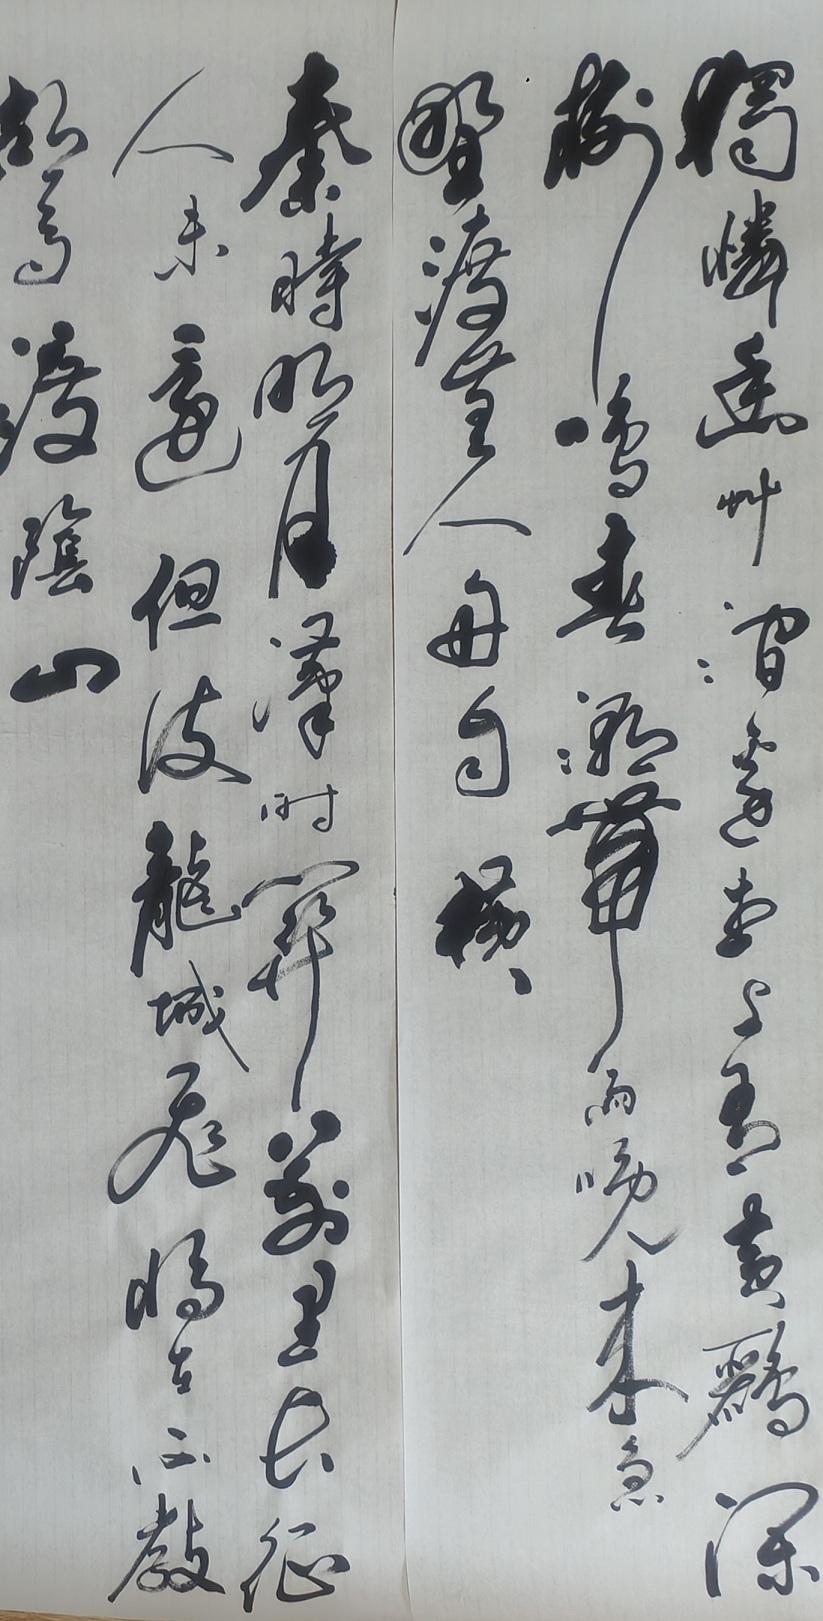 獨憐幽艸澗邊生上有黃鸝深
樹鳴春潮帶雨晚來急
野渡無人舟自橫
秦時明月漢时關萬里長征
人未還但使龍城飛將在不教
胡馬渡陰山